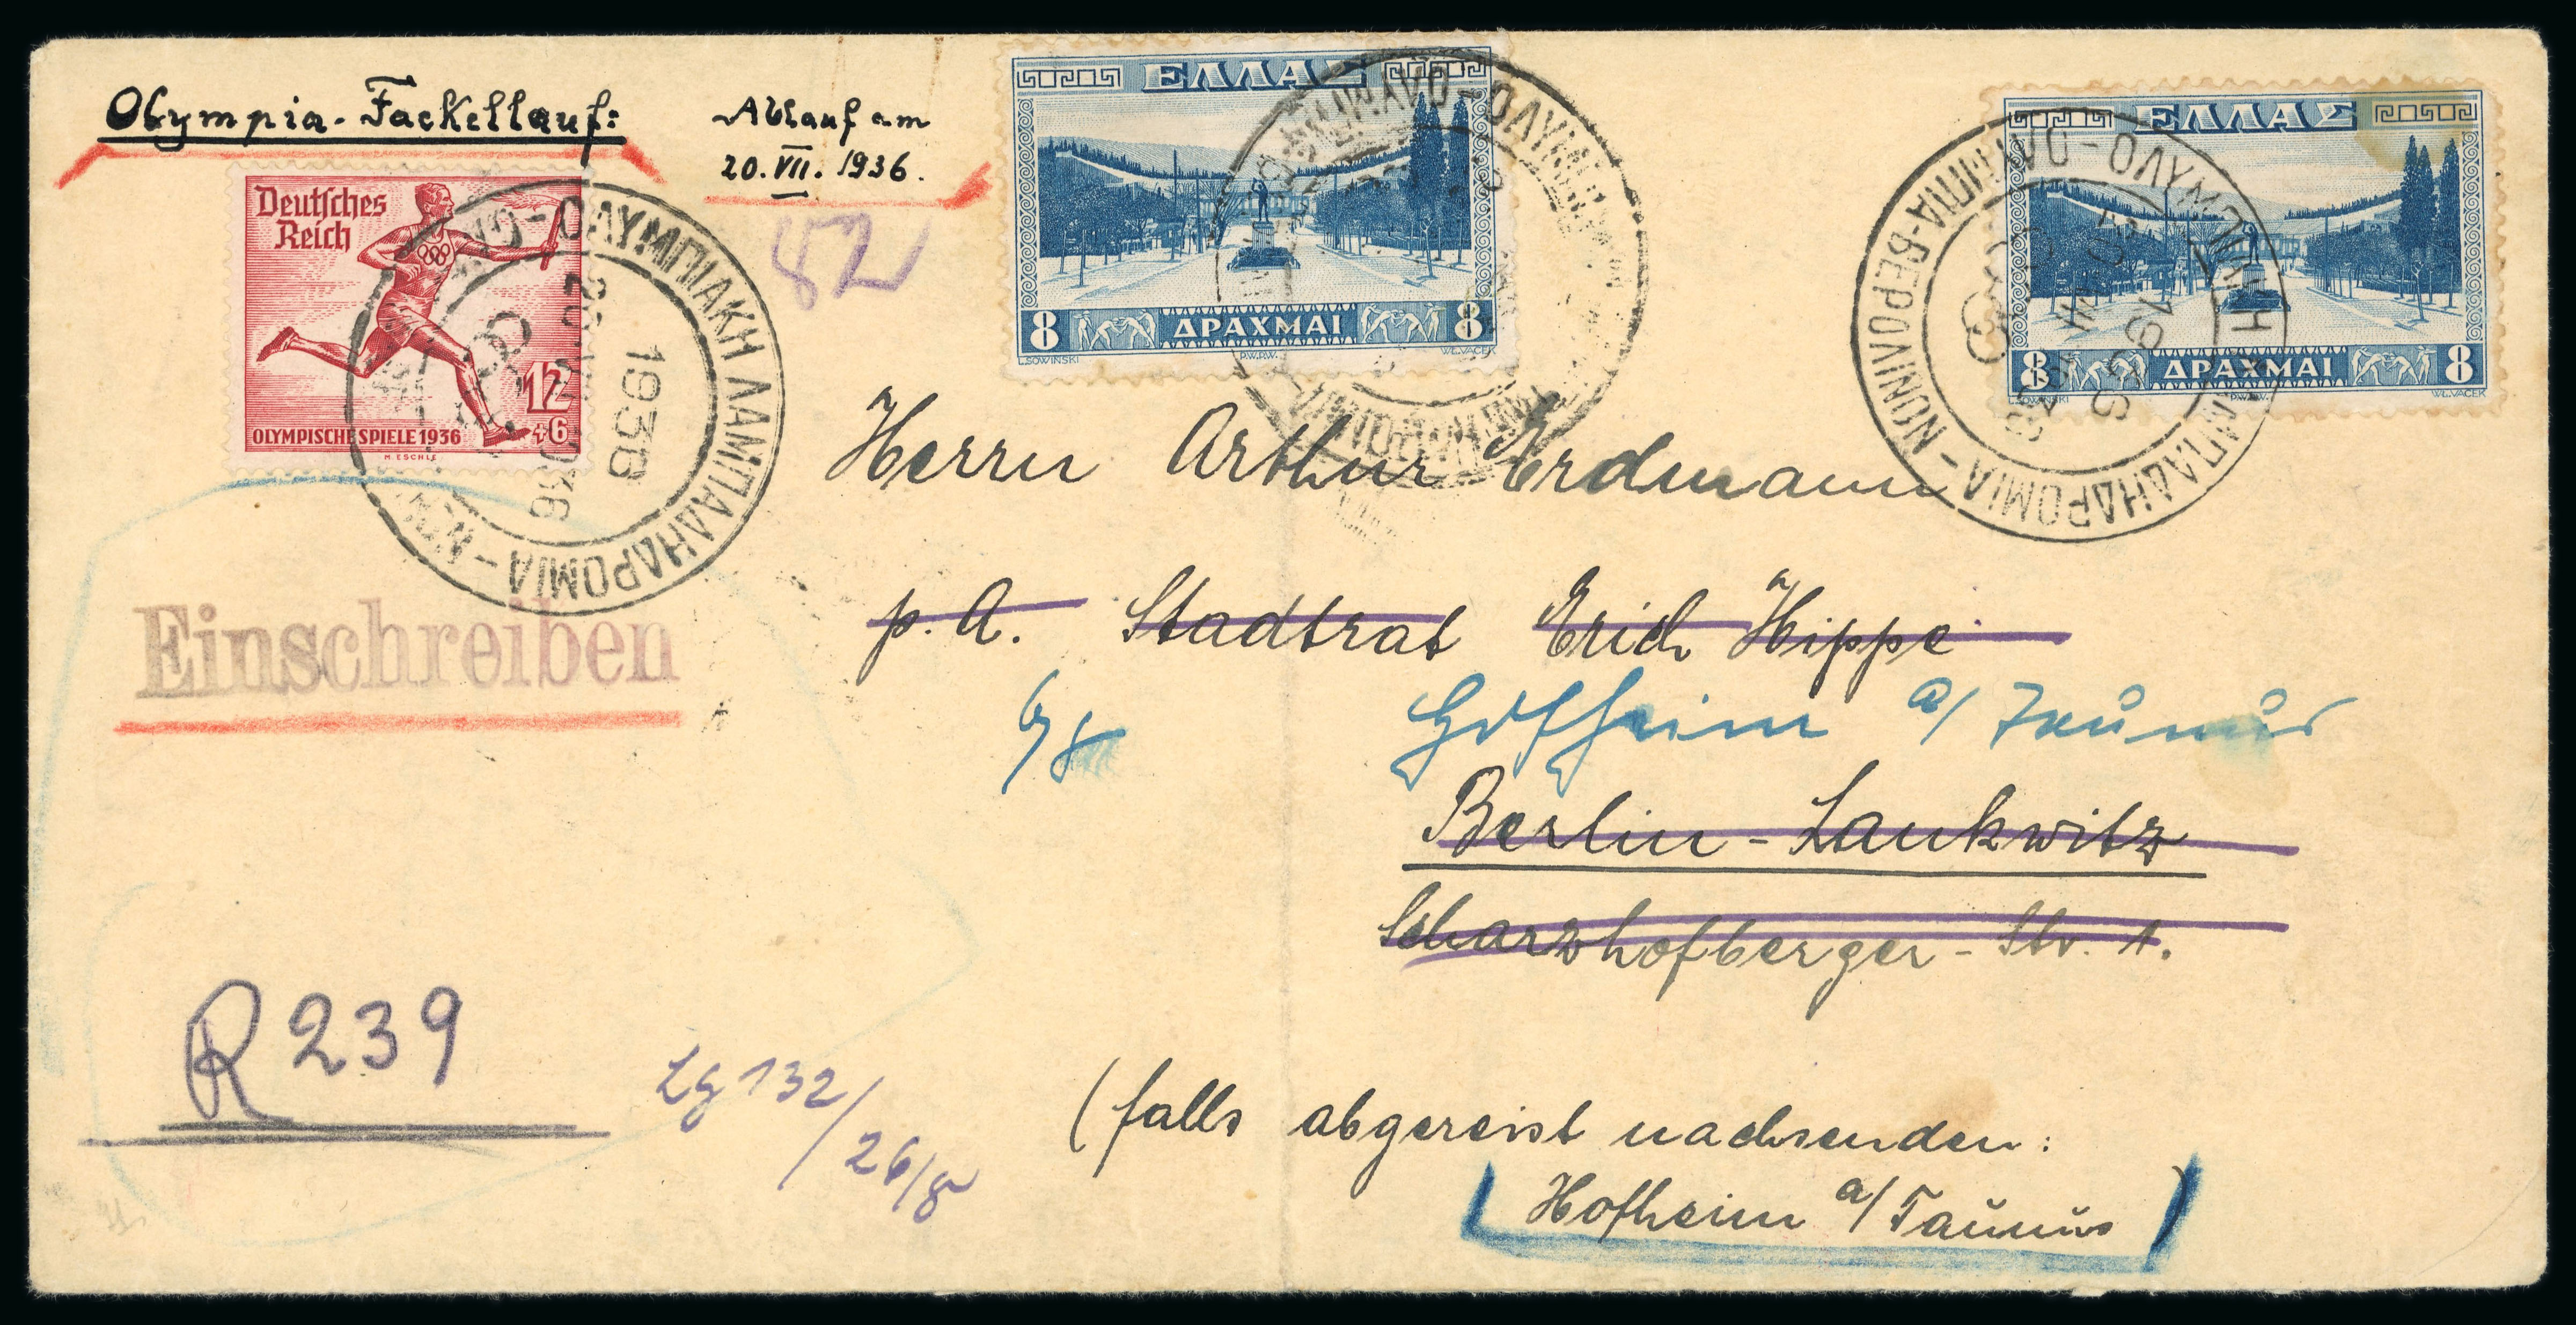 Olympia-Fackellauf:
Ablauf am
20. VII. 1936.
Deutsches
Reich
12
+6
OLYMPISCHE SPIELE 1936
M. ESCHLE
ΟΛΥΜΠΙΑΚΗ ΛΑΜΠΑΔΗΔΡΟΜΙΑ
1936
82
ΕΛΛΑΣ
8 ΔΡΑΧΜΑΙ 8
L.SOWINSKI P.W.P.W. WŁ.VACEK
ΕΛΛΑΣ
8 ΔΡΑΧΜΑΙ 8
L.SOWINSKI P.W.P.W. WŁ.VACEK
ΟΛΥΜΠΙΑΚΗ ΛΑΜΠΑΔΗΔΡΟΜΙΑ - ΟΛΥΜΠΙΑ-ΒΕΡΟΛΙΝΟΝ
1936
Herrn Arthur Erdmann
p. A. Stadtrat Erich Hippe
Einschreiben
Hofheim a/Taunus
Berlin-Lankwitz
Scharzhofberger-Str. 1.
R 239
Lg 132/
26/8
(falls abgereist nachsenden:
Hofheim a/Taunus)